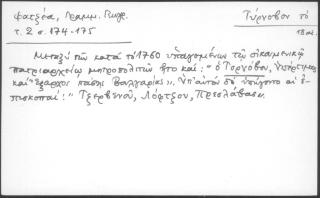 Φατζέα, Γραμμ. Γεωγρ. Τύρνοβον τὸ
τ. 2 σ. 174-175 18 αἰ.
Μεταξὺ τῶν κατὰ τὸ 1760 ὑπαγομένων τῷ οἰκουμενικῷ
πατριαρχείῳ μητροπολιτῶν ἦτο καὶ: "ὁ Τορνόβου, ὑπέρτιμος
καὶ "Ἔξαρχος πάσης Βουλγαρίας». Ὑπ' αὐτὸν δὲ ὑπήγοντο αἱ ἐ-
πισκοπαί: "Τζερβενοῦ, Λόφτζου, Πρεσλάβας».